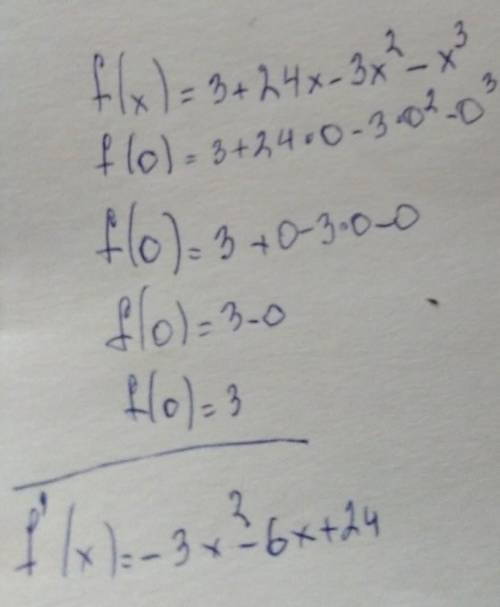 f(x) = 3 + 24x - 3x² - x³
f(0) = 3 + 24·0 - 3·0² - 0³
f(0) = 3 + 0 - 3·0 - 0
f(0) = 3 - 0
f(0) = 3
f'(x) = -3x² - 6x + 24